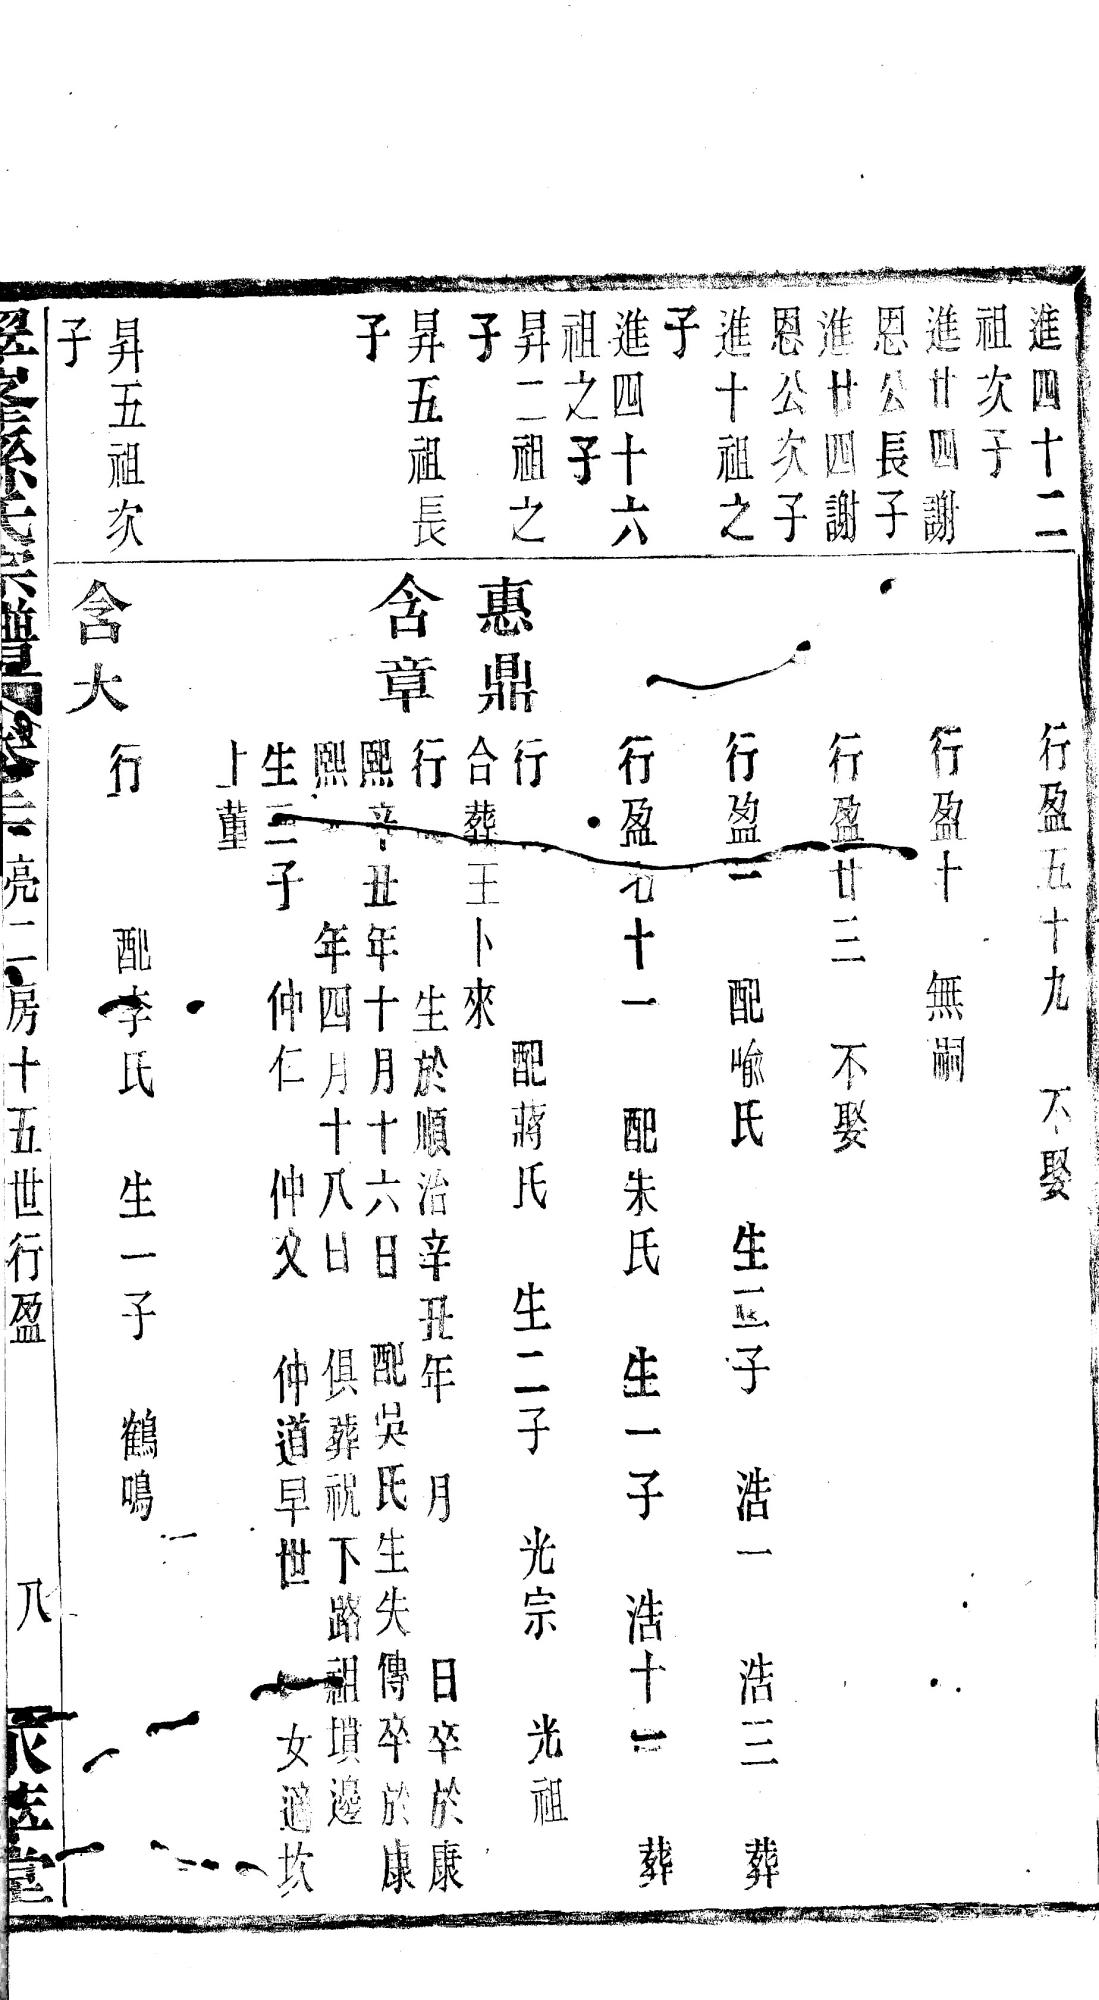 進四十二
祖次子
行盈五十九　不娶
進廿四謝
恩公長子
行盈十　無嗣
進廿四謝
恩公次子
行盈廿三　不娶
進十祖之
子
行盈　配喻氏　生二子　浩一　浩三　葬
進四十六
祖之子
行盈七十一　配朱氏　生一子　浩十　葬
昇二祖之
子
惠鼎
行　配蔣氏　生二子　光宗　光祖
合葬王卜來
昇五祖長
子
含章
行　生於順治辛丑年　月　日卒於康
熙辛丑年十月十六日　配吳氏生失傳卒於康
熙　年四月十八日　俱葬祝下路祖墳邊
生三子　仲仁　仲父　仲道早世　女適坎
上董
昇五祖次
子
含大
行　配李氏　生一子　鶴鳴
孫氏宗譜　卷二　亮二房十五世行盈　八　堂